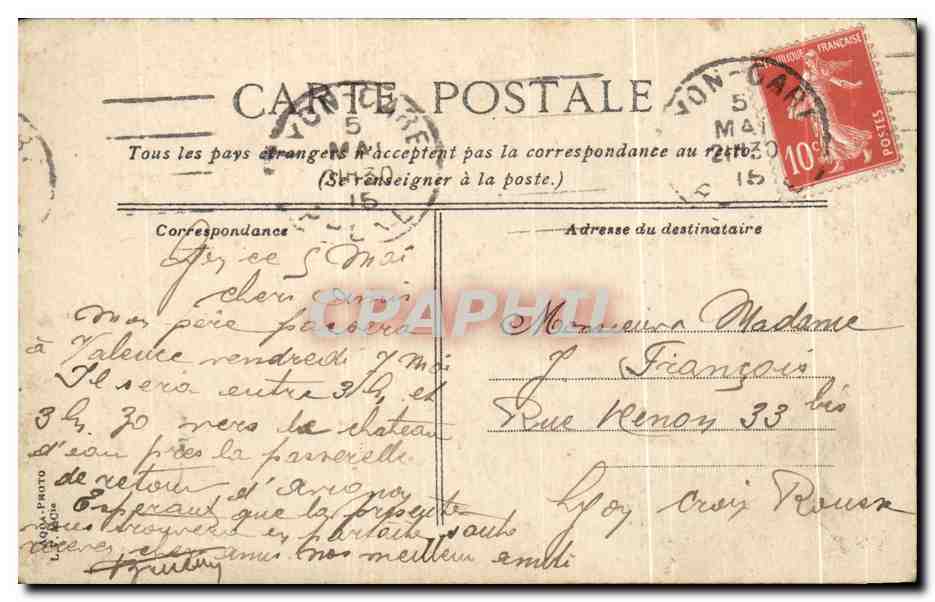 CARTE POSTALE
Tous les pays étrangers n'acceptent pas la correspondance au recto.
(Se renseigner à la poste.)
Correspondance
Adresse du destinataire
LYON-GARE
5
MAI
30
15
YON-GARE
5
MAI
2130
15
RÉPUBLIQUE FRANÇAISE
10c
POSTES
ce 5 Mai
chers amis
Mon père passera
à Valence vendredi 7 Mai
Il sera entre 3h et
3h 30 vers le chateau
d'eau près la passerelle
de retour d'avignon
Esperant que la presente
vous trouvera en parfaite santé
recevez chers amis nos meilleur amiti
Monsieur Madame
J François
Rue Henon 33 bis
Lyon Croix Rousse
CPAPHIL
AQUA-PHOTO